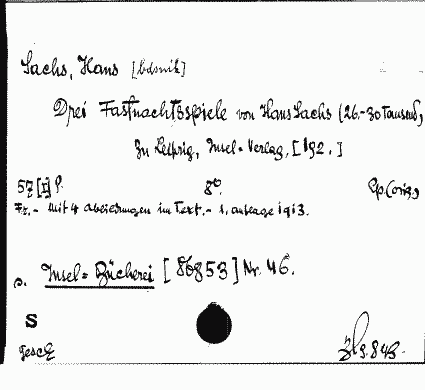 Sachs, Hans
Drei Fastnachtsspiele von Hans Sachs (26.-30 Tausend,
Zu Leipzig, Insel-Verlag, [192.]
57 [1] p. 8°. Pp.(orig.)
Fr.- Mit 4 abbildungen im Text.- 1. auflage 1913.
s. Insel-Bücherei [86853] Nr. 46.
S
Gesch